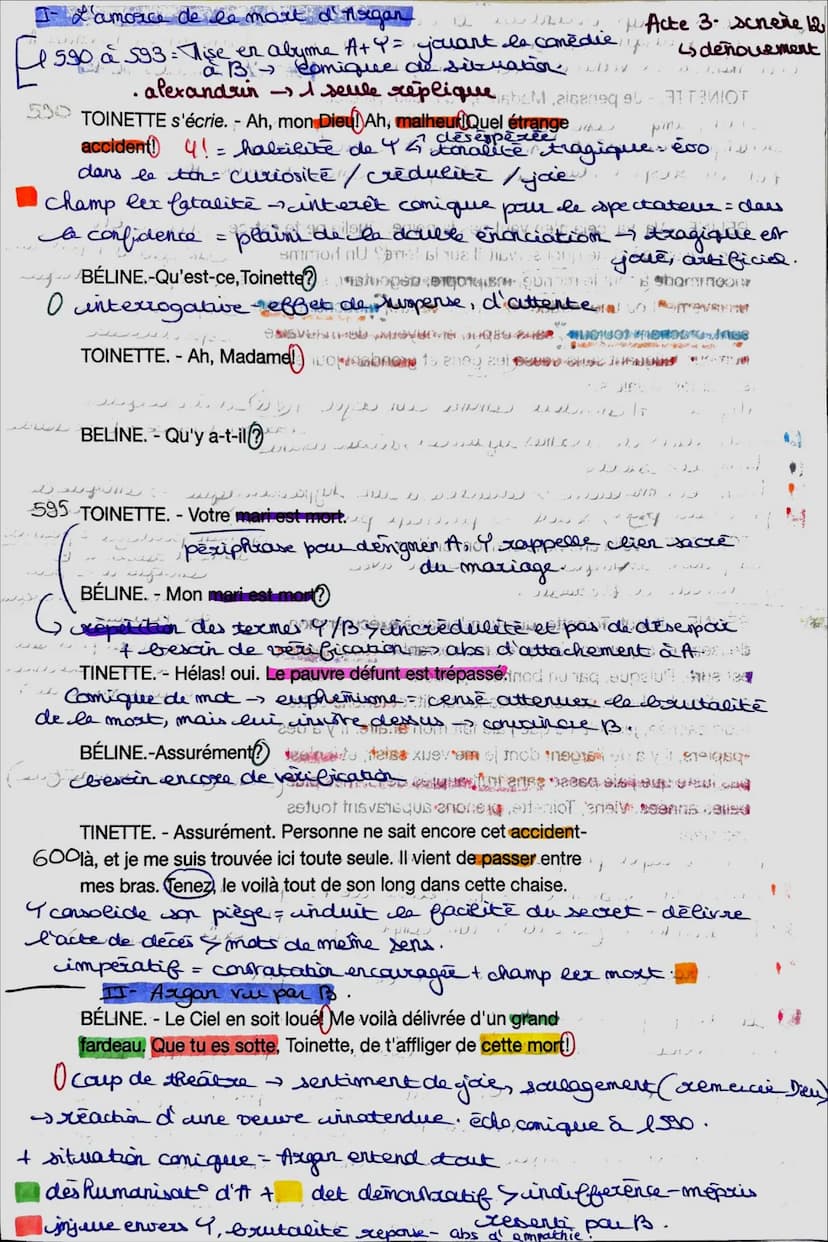 I- L'amorce de la mort d'Argan
Acte 3- scneie 12
↳ dénouement
l 590 à 593 = Mise en abyme A+Y = jouant la comédie
à B → comique de situation
. alexandrin → 1 seule réplique
590 TOINETTE s'écrie. - Ah, mon Dieu! Ah, malheur! Quel étrange
accident! 4! = habilité de Y ↳ tonalité tragique = éco
→ désespérée
dans le = curiosité / crédulité / joie
champ lex fatalité → intérêt comique pour le spectateur = dans
la confidence = plaini de la double énonciation → tragique est
joué, artificiel.
BÉLINE.-Qu'est-ce,Toinette?
O interrogative - effet de suspense, d'attente
TOINETTE. - Ah, Madame!
BELINE. - Qu'y a-t-il?
595 TOINETTE. - Votre mari est mort.
périphrase pour désigner A, Y rappelle lien sacré
du mariage.
BÉLINE. - Mon mari est mort?
répétition des termes Y/B > incrédulité et pas de désespoir
+ besoin de vérification → abs d'attachement à A.
TINETTE. - Hélas! oui. Le pauvre défunt est trépassé.
Comique de mot → euphémisme = censé atténuer la brutalité
de la mort, mais lui insiste dessus → convaincre B.
BÉLINE.-Assurément?
besoin encore de vérification
TINETTE. - Assurément. Personne ne sait encore cet accident-
600 là, et je me suis trouvée ici toute seule. Il vient de passer entre
mes bras. Tenez, le voilà tout de son long dans cette chaise.
Y consolide son piège = induit la facilité du secret - délivre
l'acte de décés ↳ mots de même sens.
impératif = constatation encouragée + champ lex mort
II- Argan vu par B.
BÉLINE. - Le Ciel en soit loué! Me voilà délivrée d'un grand
fardeau. Que tu es sotte, Toinette, de t'affliger de cette mort!
Coup de théâtre → sentiment de joie, soulagement (remercie Dieu)
→ réaction d'une veuve innatendue. écho comique à l 590.
+ situation comique = Argan entend tout
déshumanisat° d'A + det démonstratif > indifférence - mépris
resenti par B.
injure envers Y, brutalité reponse - abs d'empathie.